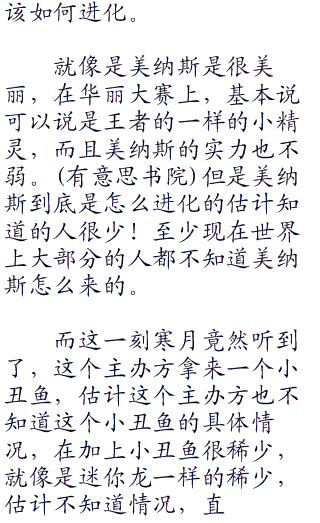 该如何进化。
就像是美纳斯是很美
丽，在华丽大赛上，基本说
可以说是王者的一样的小精
灵，而且美纳斯的实力也不
弱。(有意思书院)但是美纳
斯到底是怎么进化的估计知
道的人很少！至少现在世界
上大部分的人都不知道美纳
斯怎么来的。
而这一刻寒月竟然听到
了，这个主办方拿来一个小
丑鱼，估计这个主办方也不
知道这个小丑鱼的具体情
况，在加上小丑鱼很稀少，
就像是迷你龙一样的稀少，
估计不知道情况，直